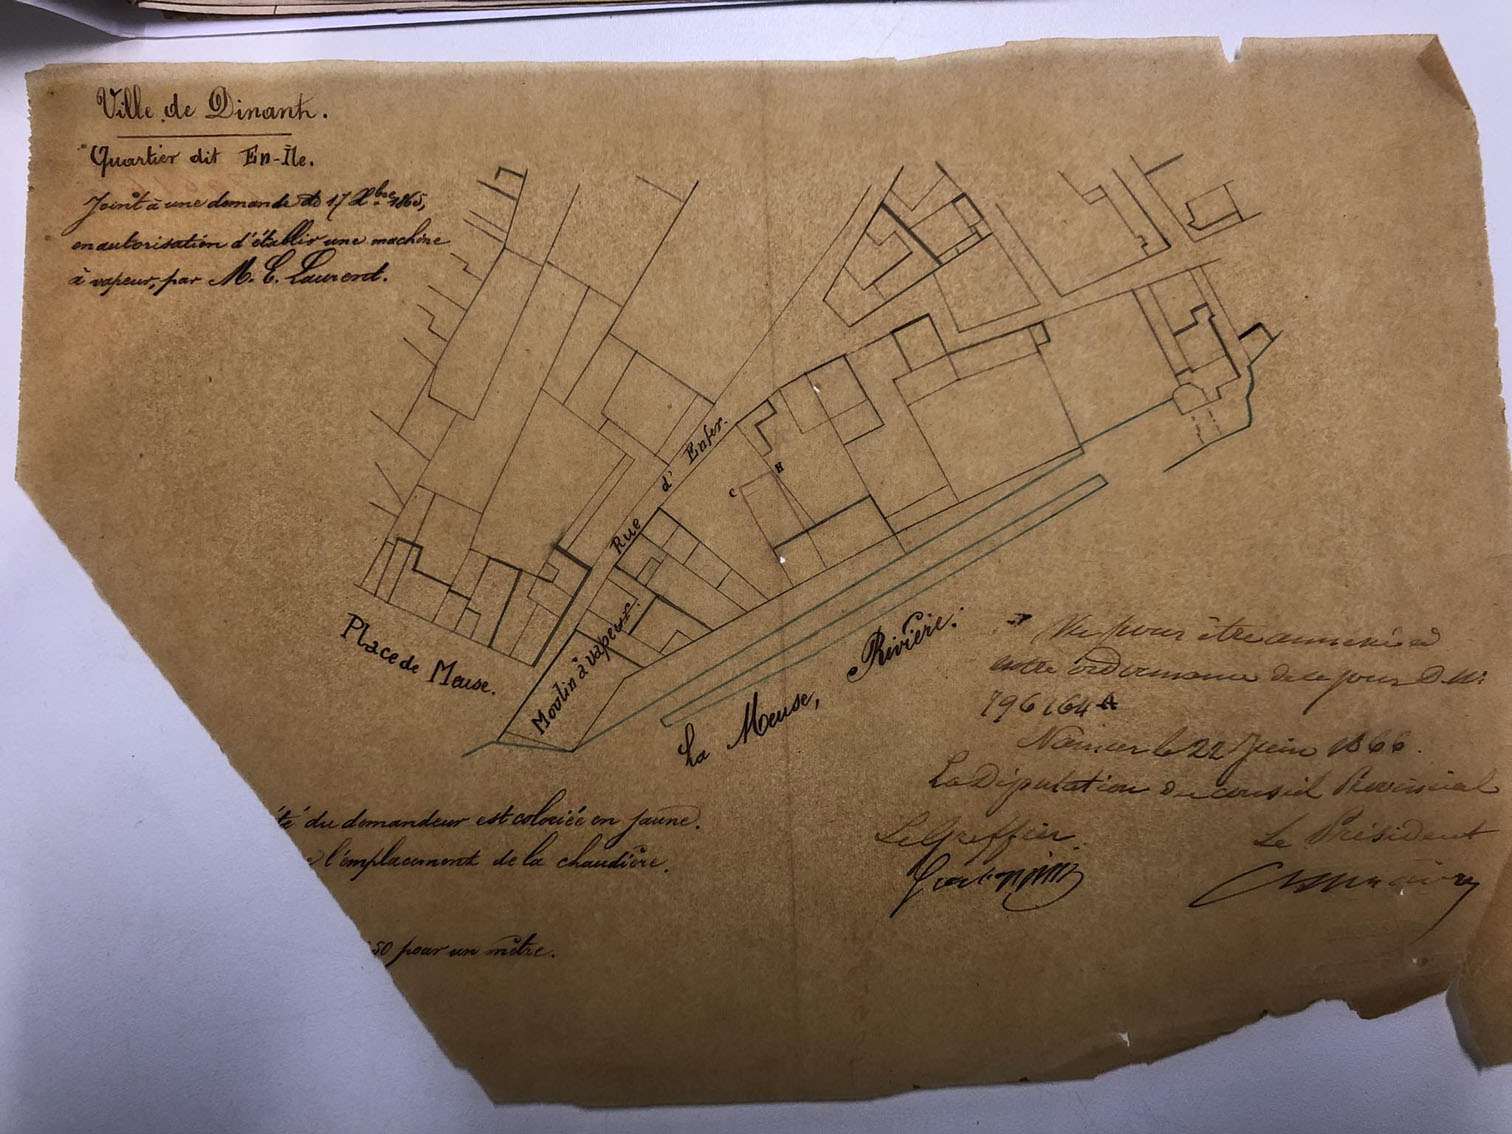 Ville de Dinant.
Quartier dit En-Île.
Joint à une demande du 17 Xbre 1865,
en autorisation d'établir une machine
à vapeur, par M. C. Laurent.
Rue d'Enfer.
C
H
Place de Meuse.
Moulin à vapeur.
La Meuse, Rivière.
Vu pour être annexé à
notre ordonnance de ce jour D. N°
796164 A
Namur le 22 Juin 1866.
La Députation du conseil Provincial
Le Greffier
Le Président
té du demandeur est coloriée en jaune.
l'emplacement de la chaudière.
50 pour un mètre.